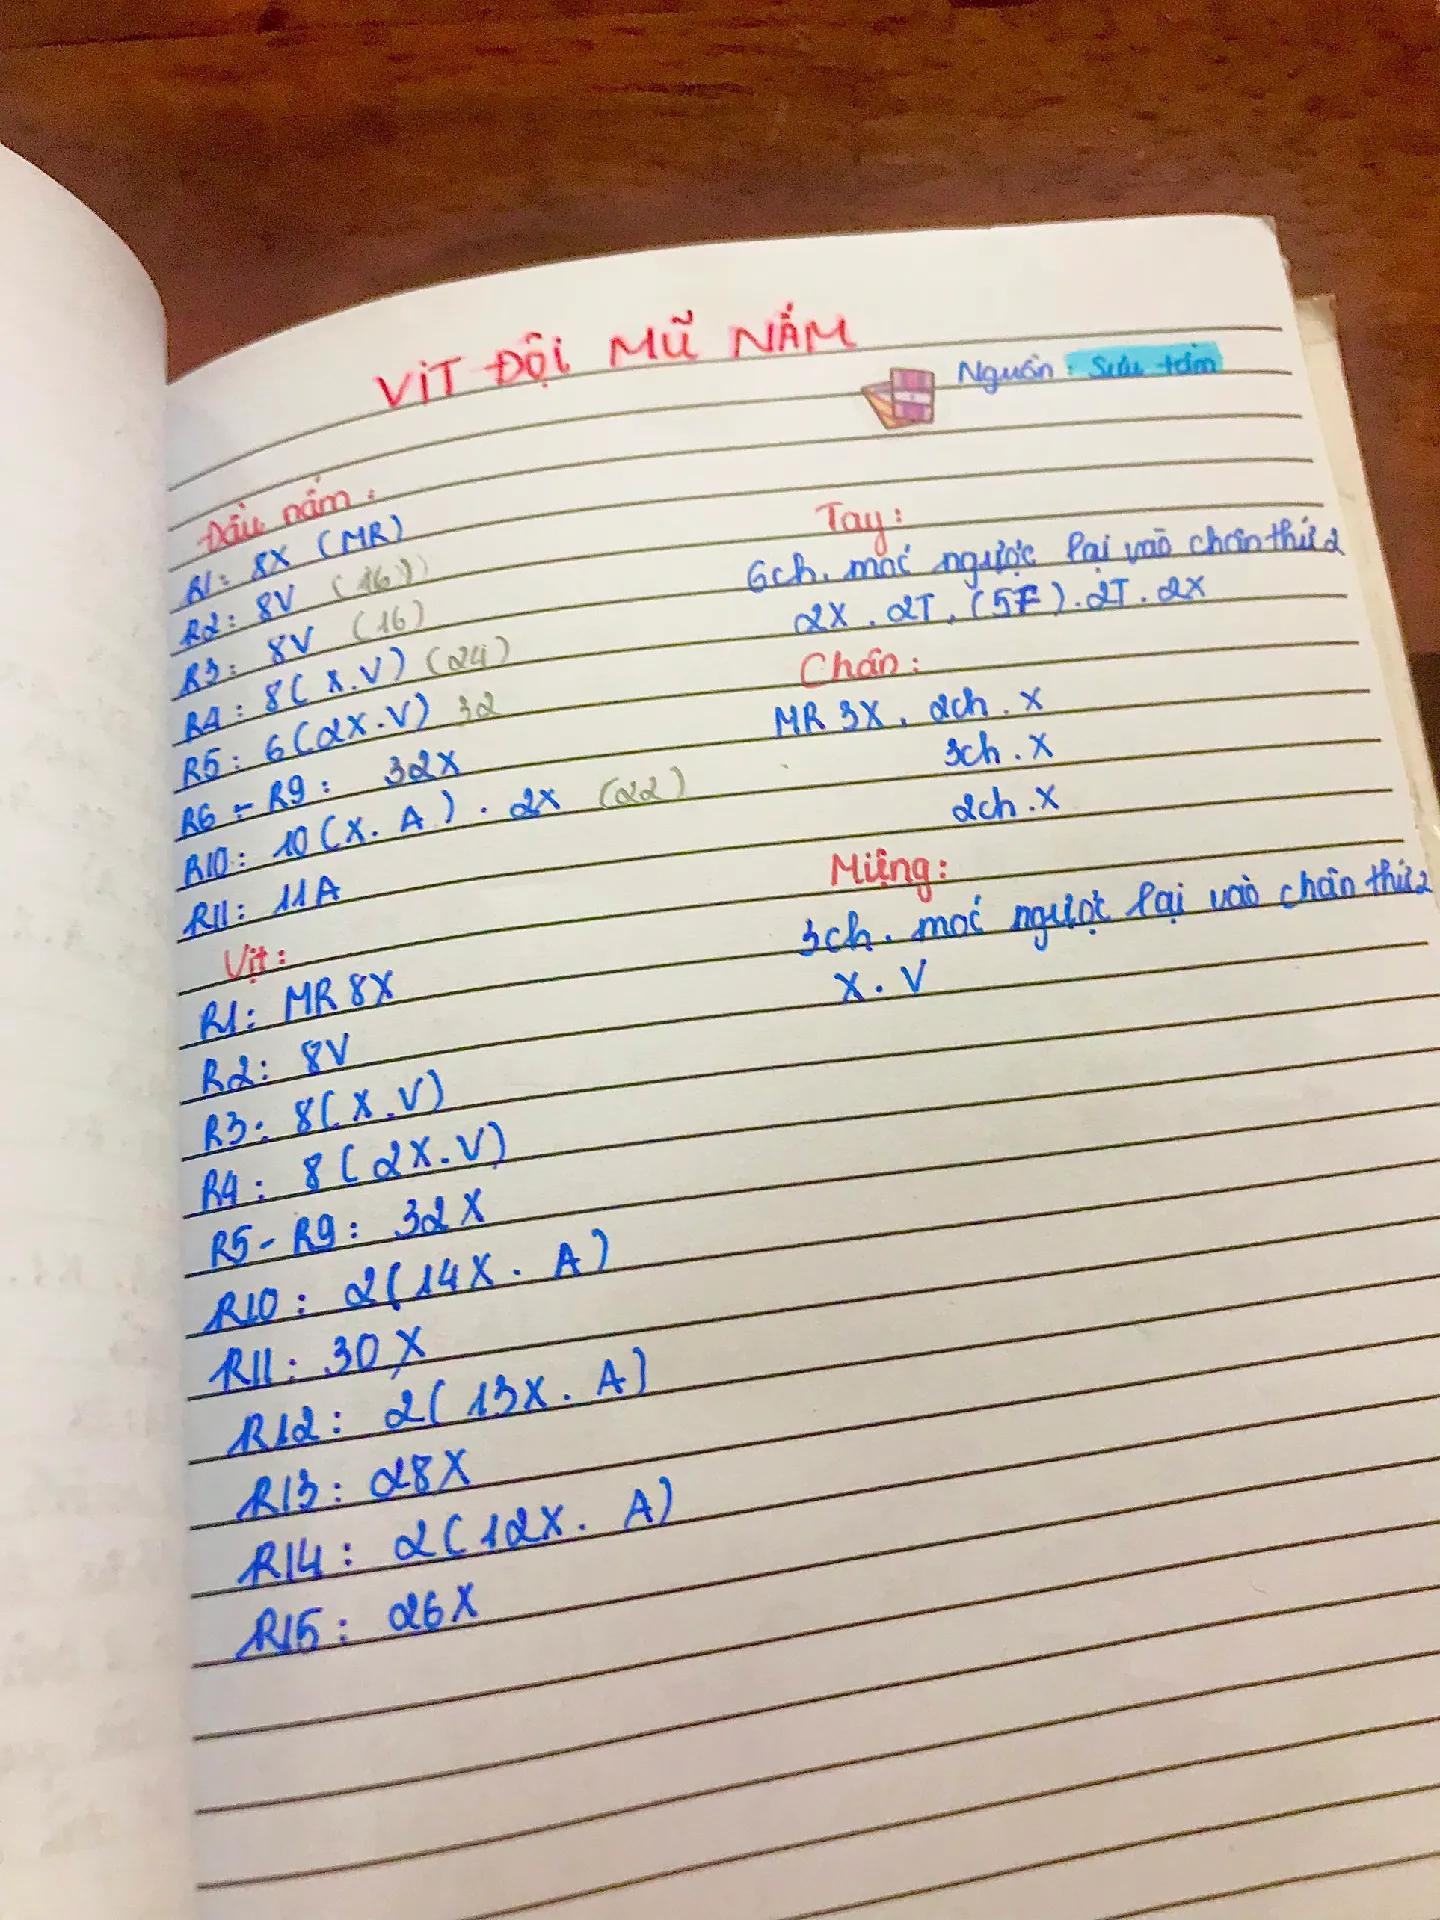 VỊT ĐỘI MŨ NẤM
Nguồn: Sưu tầm
Đầu nấm:
R1: 8X (MR)
R2: 8V (16)
R3: 8V (16)
R4: 8(X.V) (24)
R5: 6(2X.V) 32
R6 - R9: 32X
R10: 10(X.A).2X (22)
R11: 11A
Vịt:
R1: MR 8X
R2: 8V
R3: 8(X.V)
R4: 8(2X.V)
R5-R9: 32X
R10: 2(14X.A)
R11: 30X
R12: 2(13X.A)
R13: 28X
R14: 2(12X.A)
R15: 26X
Tay:
6ch. móc ngược lại vào chân thứ 2
2X.2T.(5F).2T.2X
Chân:
MR 3X. 2ch.X
3ch.X
2ch.X
Miệng:
3ch. móc ngược lại vào chân thứ 2
X.V